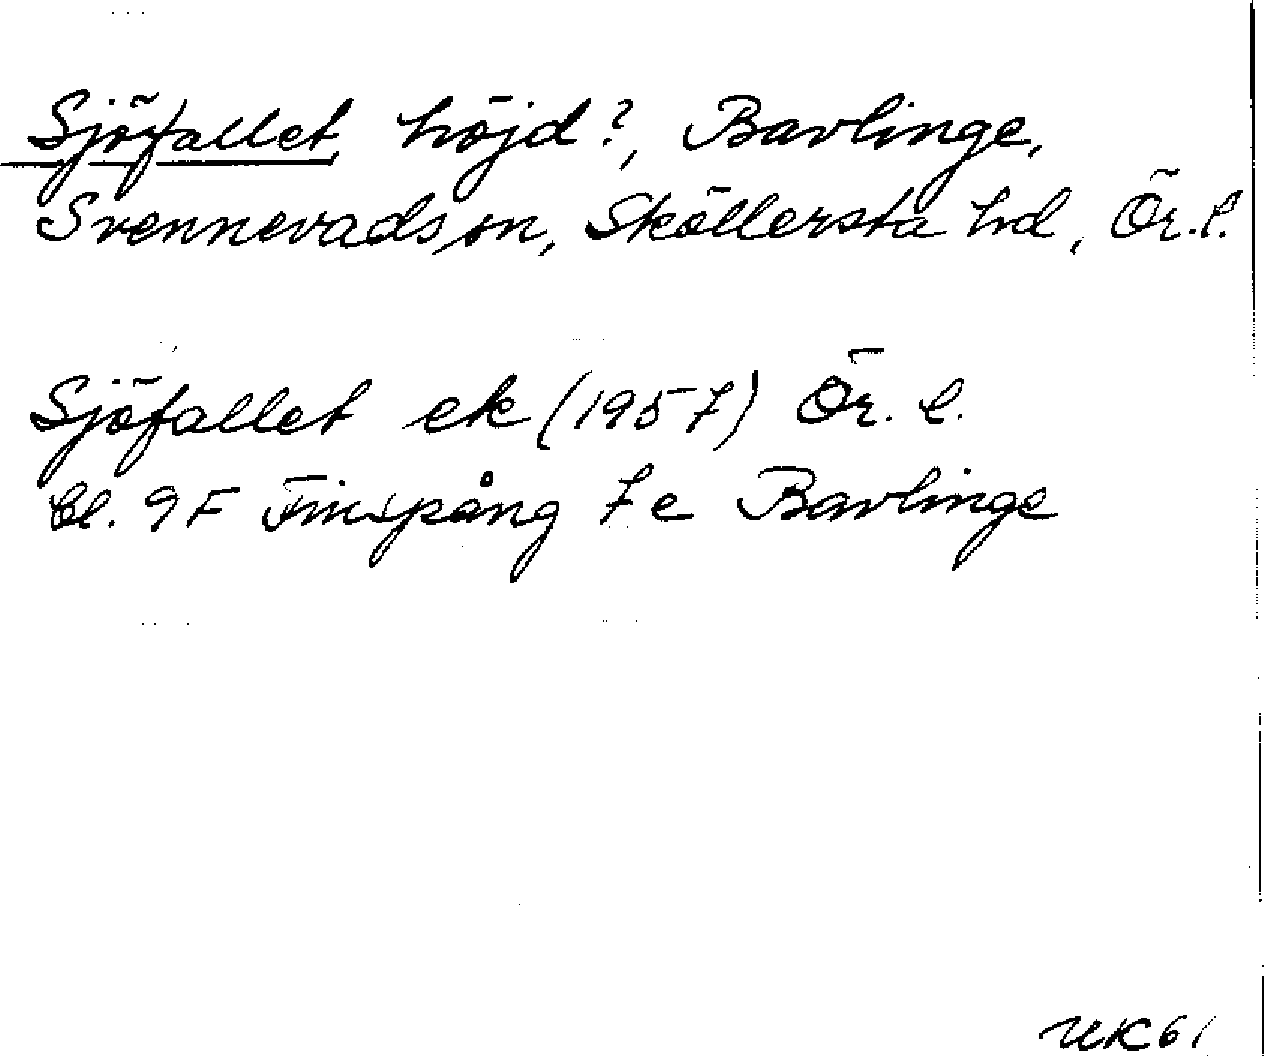 Sjöfallet höjd?, Bavlinge,
Svennevads sn, Sköllersta hd, Ör. l.
Sjöfallet ek (1957) Ör. l.
Bl. 9F Finspång 7e Bavlinge
UK61